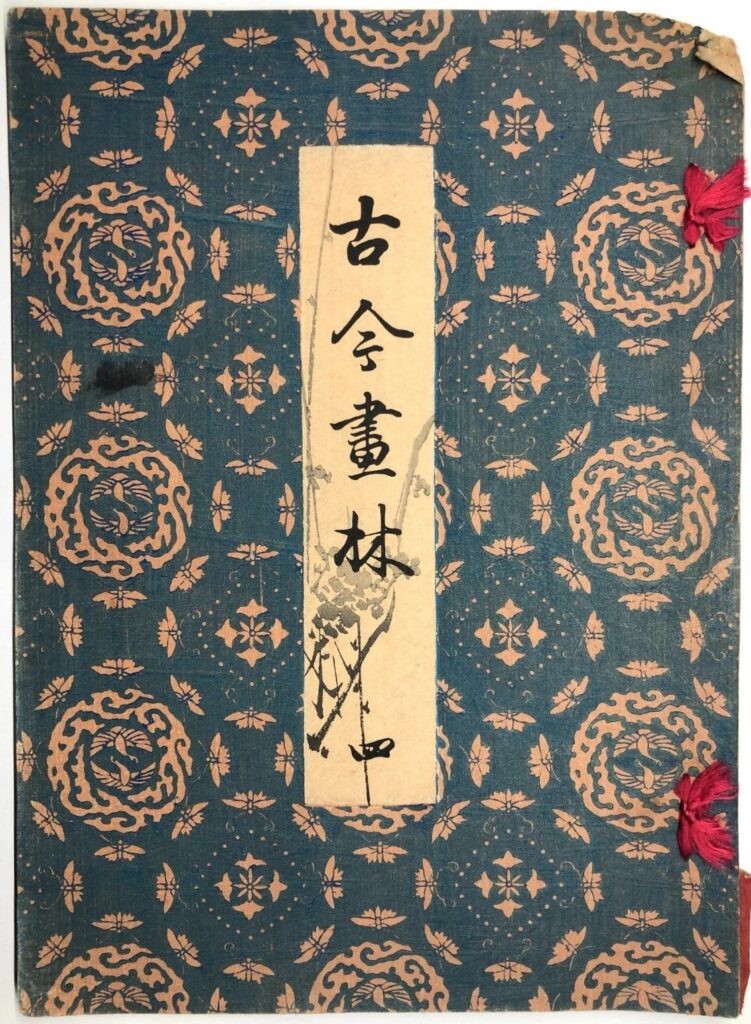 古今畫林 四